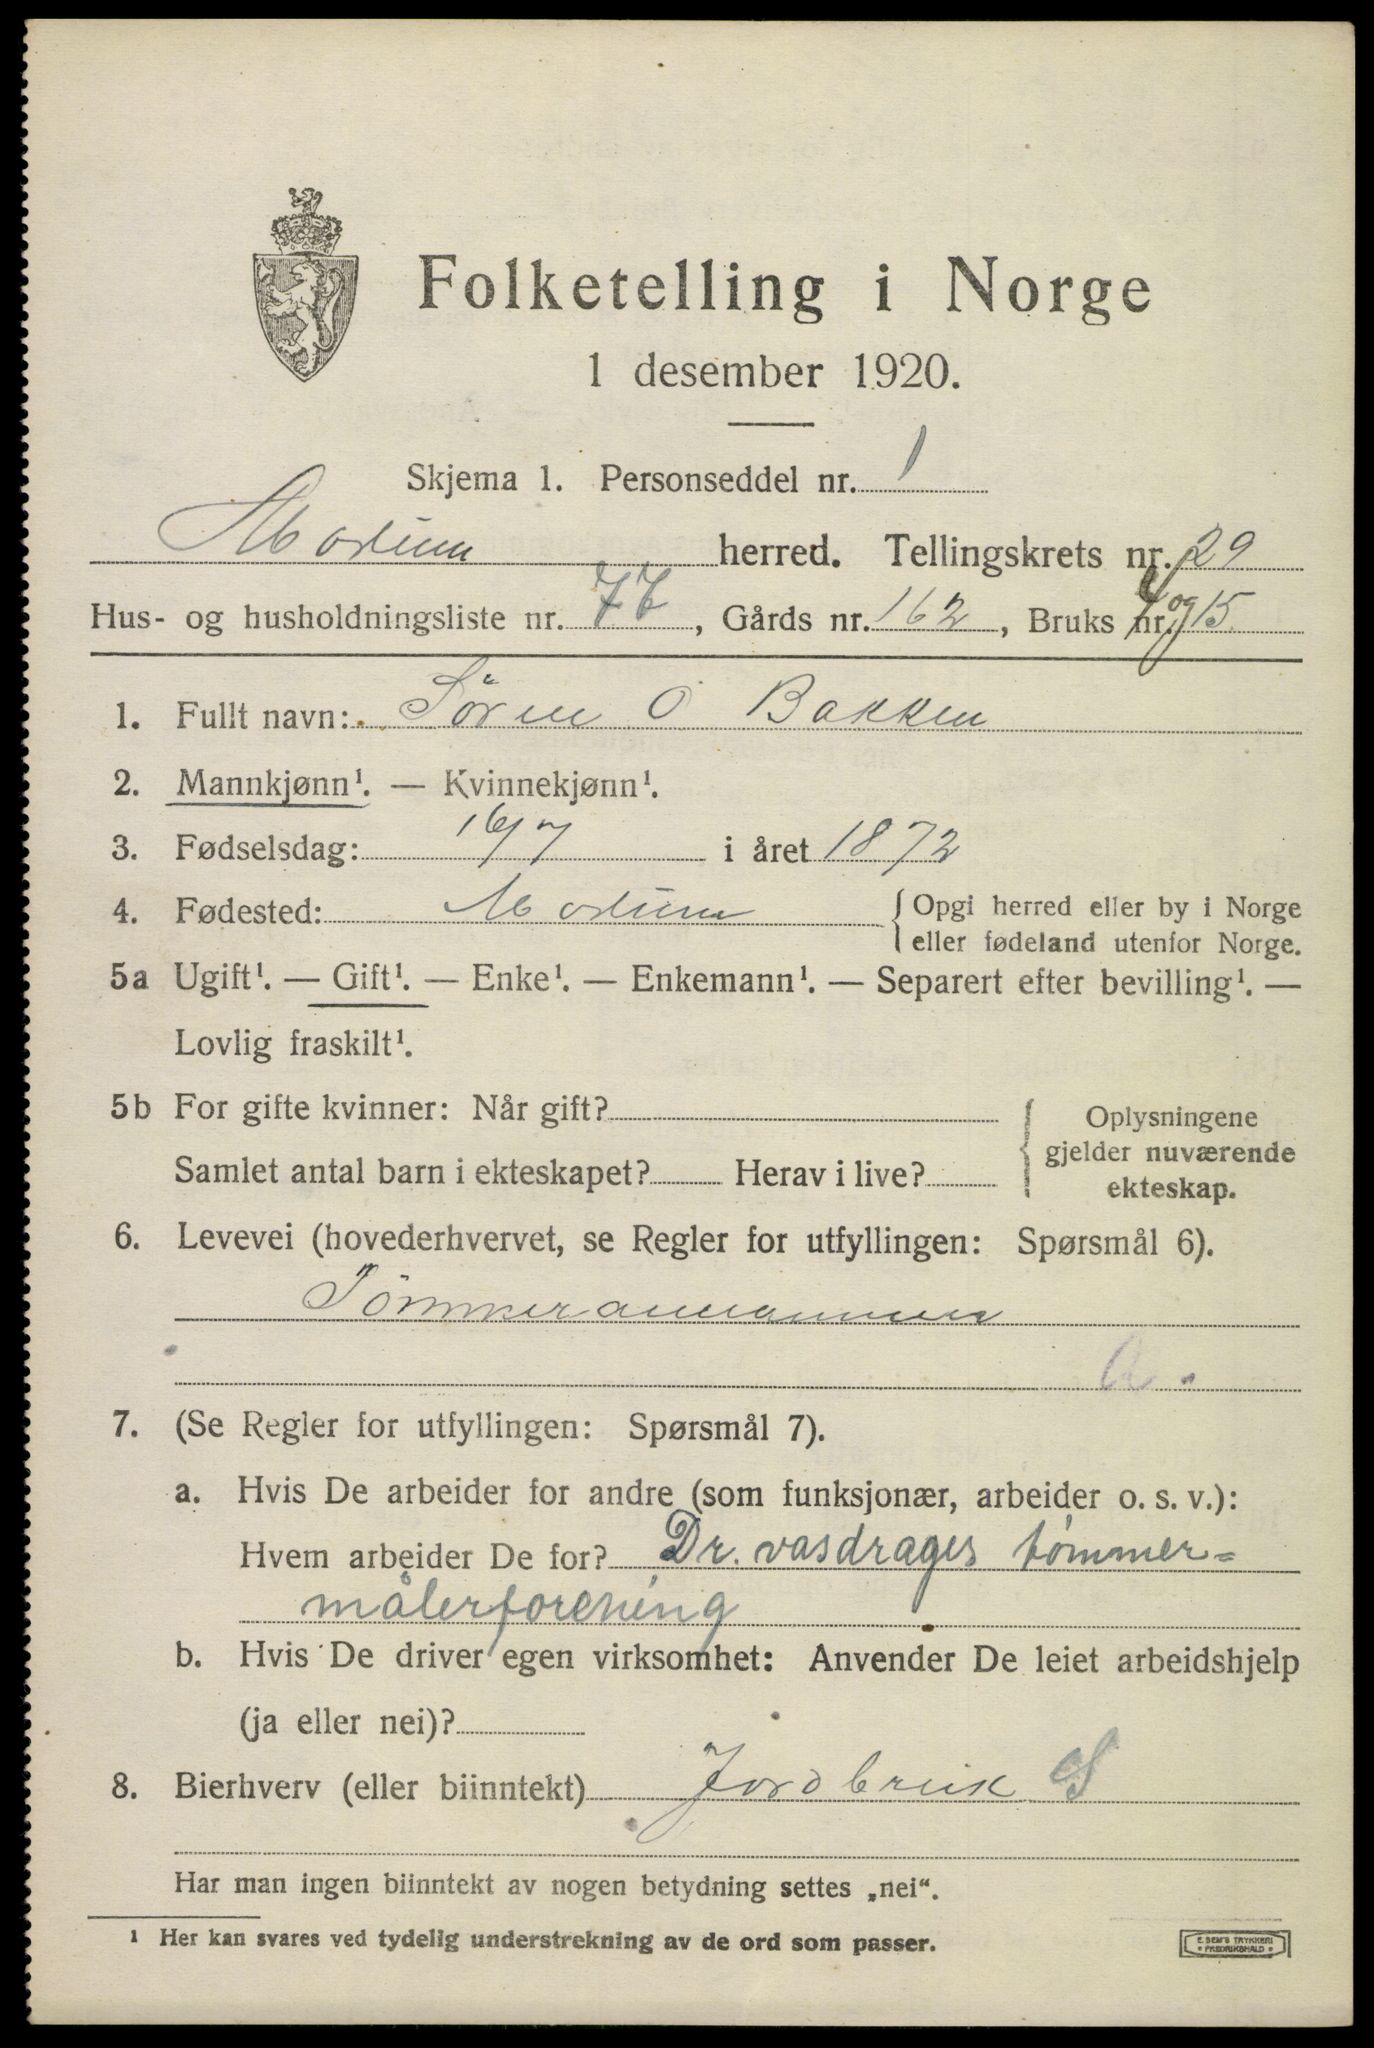 Folketelling i Norge
1 desember 1920.
Skjema 1. Personseddel nr. 1
Modum herred. Tellingskrets nr. 29
Hus- og husholdningsliste nr. 77, Gårds nr. 162, Bruks nr. 4 og 15
1. Fullt navn: Søren O Bakken
2. Mannkjønn¹. — Kvinnekjønn¹.
3. Fødselsdag: 16/7 i året 1872
4. Fødested: Modum { Opgi herred eller by i Norge
eller fødeland utenfor Norge.
5a Ugift¹. — Gift¹. — Enke¹. — Enkemann¹. — Separert efter bevilling¹. —
Lovlig fraskilt¹.
5b For gifte kvinner: Når gift?
Samlet antal barn i ekteskapet? Herav i live?
{ Oplysningene
gjelder nuværende
ekteskap.
6. Levevei (hovederhvervet, se Regler for utfyllingen: Spørsmål 6).
A.
7. (Se Regler for utfyllingen: Spørsmål 7).
a. Hvis De arbeider for andre (som funksjonær, arbeider o. s. v.):
Hvem arbeider De for? Dr. vasdrages tømmer=
målerforening
b. Hvis De driver egen virksomhet: Anvender De leiet arbeidshjelp
(ja eller nei)?
8. Bierhverv (eller biinntekt) Jordbruk S
Har man ingen biinntekt av nogen betydning settes „nei“.
¹ Her kan svares ved tydelig understrekning av de ord som passer.
E. SEM'S TRYKKERI
• FREDRIKSHALD •